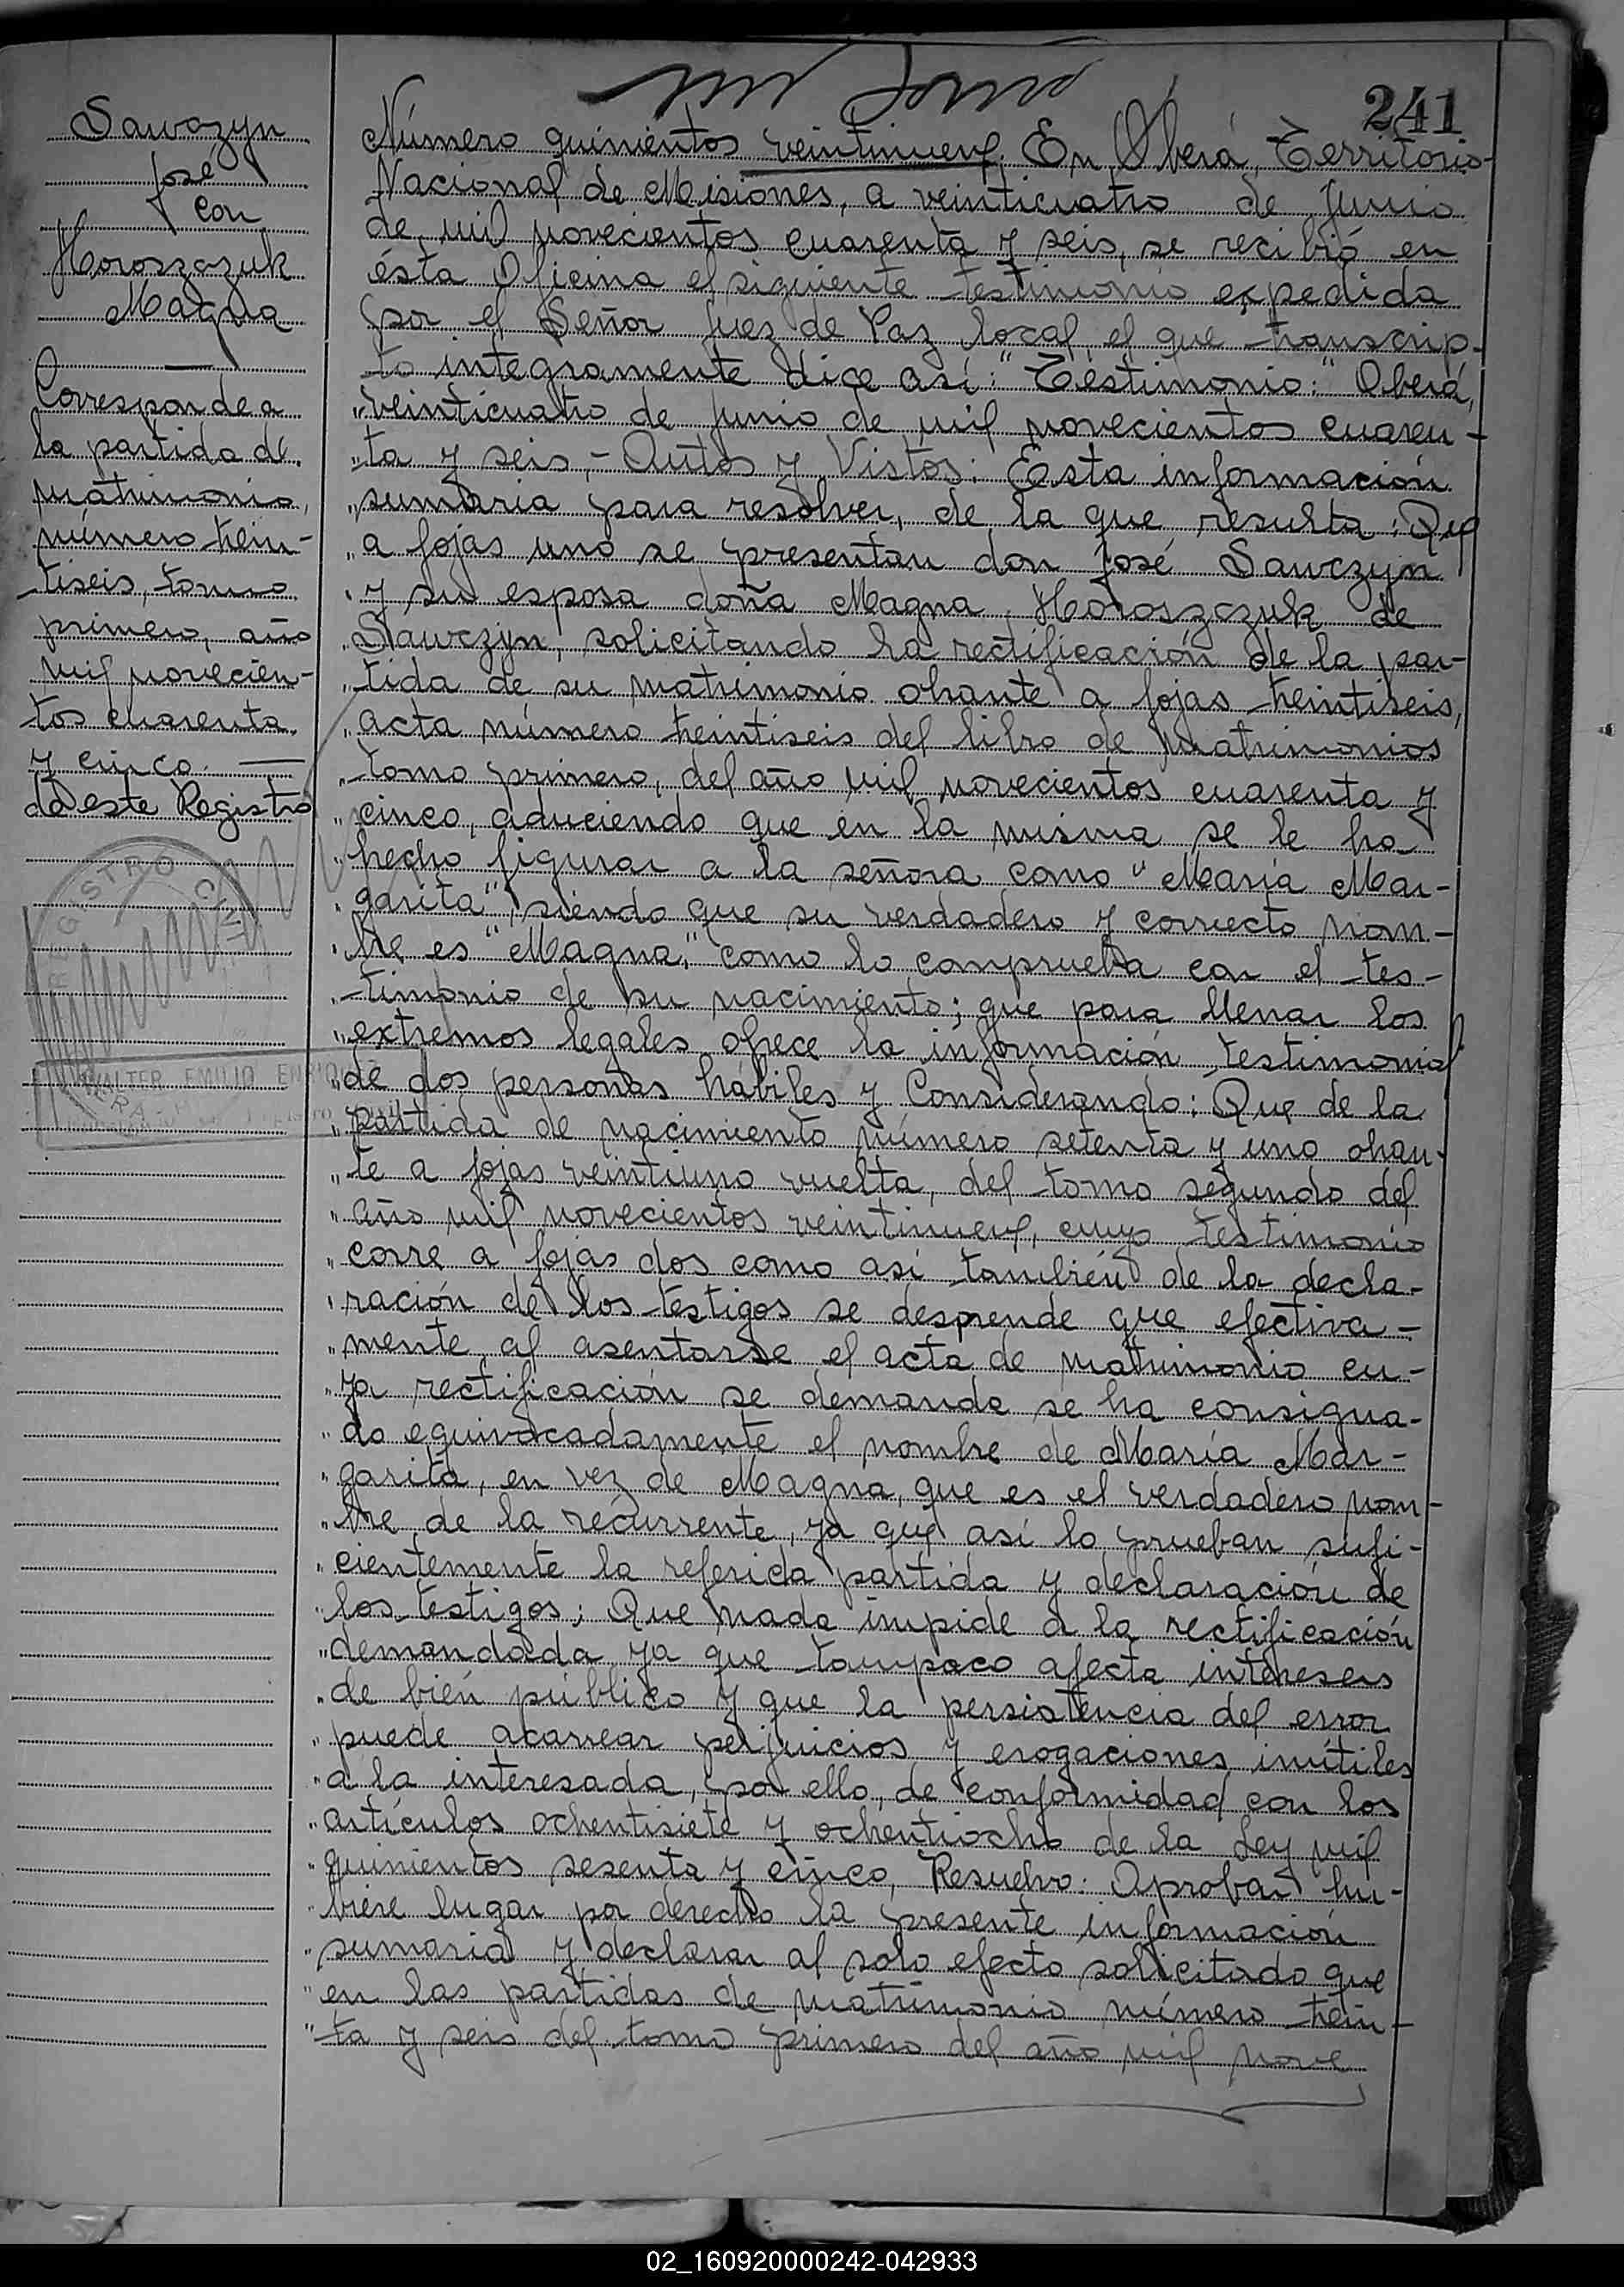 241
Sawczyn
José
con
Horoszczuk
Magna
Corresponde a
la partida de
matrimonio,
número trein-
tiseis, tomo
primero, año
mil novecien-
tos cuarenta
y cinco.
de este Registro
REGISTRO CIVIL
WALTER EMILIO ENRIQU
Número quinientos veintinueve. En Oberá, Territorio
Nacional de Misiones, a veinticuatro de Junio
de mil novecientos cuarenta y seis, se recibió en
ésta Oficina el siguiente testimonio expedida
por el Señor Juez de Paz local el que transcrip-
to integramente dice así: "Testimonio:" Oberá,
"veinticuatro de Junio de mil novecientos cuaren-
"ta y seis,- Autos y Vistos: Esta información
"sumaria para resolver, de la que resulta: Que
"a fojas uno se presentan don José Sawczyn
"y su esposa doña Magna Horoszczuk de
"Sawczyn, solicitando la rectificación de la par-
"tida de su matrimonio obrante a fojas treintiseis,
"acta número treintiseis del libro de matrimonios
"tomo primero, del año mil novecientos cuarenta y
"cinco, aduciendo que en la misma se le ha
"hecho figurar a la señora como "María Mar-
"garita", siendo que su verdadero y correcto nom-
"bre es "Magna", como lo comprueba con el tes-
"timonio de su nacimiento; que para llenar los
"extremos legales ofrece la información testimonial
"de dos personas hábiles y Considerando: Que de la
"partida de nacimiento número setenta y uno obran-
"te a fojas veintiuno vuelta, del tomo segundo del
"año mil novecientos veintinueve, cuyo testimonio
"corre a fojas dos como así también de la decla-
"ración de los testigos se desprende que efectiva-
"mente al asentarse el acta de matrimonio cu-
"ya rectificación se demanda se ha consigna-
"do equivocadamente el nombre de María Mar-
"garita, en vez de Magna, que es el verdadero nom-
"bre de la recurrente, ya que así lo prueban sufi-
"cientemente la referida partida y declaración de
"los testigos; Que nada impide a la rectificación
"demandada ya que tampoco afecta intereses
"de bién público y que la persistencia del error
"puede acarrear perjuicios y erogaciones inútiles
"a la interesada, por ello, de conformidad con los
"artículos ochentisiete y ochentiocho de la Ley mil
"quinientos sesenta y cinco, Resuelvo: Aprobar hu-
"biere lugar por derecho la presente información
"sumaria y declarar al solo efecto solicitado que
"en las partidas de matrimonio número trein-
"ta y seis del tomo primero del año mil nove
02_160920000242-042933